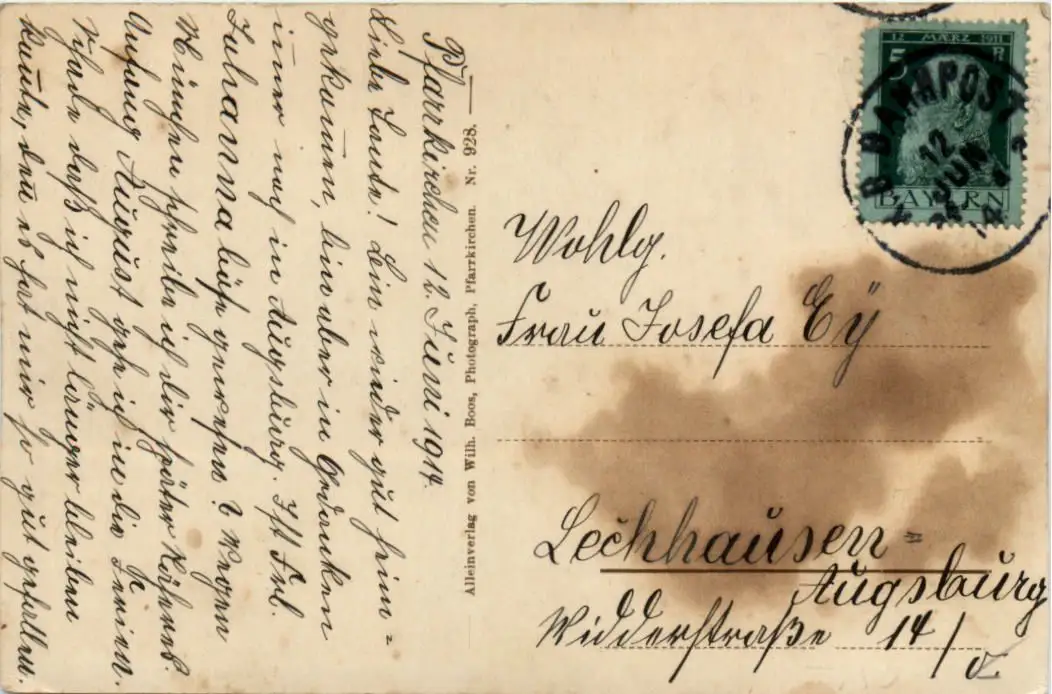 Pfarrkirchen 12. Juni 1914.
Liebe Tante! Bin wieder gut heim=
gekom̅en, bin aber in Gedanken
im̅er noch in Augsburg. Ist Frl.
Johanna böse gewesen? Wegen
Heimchen schreibe ich dir später Näheres.
Anfang August gehe ich in die Ferien.
Schade daß ich nicht länger bleiben
kon̅te, den̅ es hat mir so gut gefallen.
Alleinverlag von Wilh. Boos, Photograph, Pfarrkirchen. Nr. 928.
12 MÆRZ 1911
5
BAYERN
BAHNPOST
12
JUN
Wohlg.
Frau Josefa Eÿ
Lechhausen=
Augsburg
Widderstraße 14/0